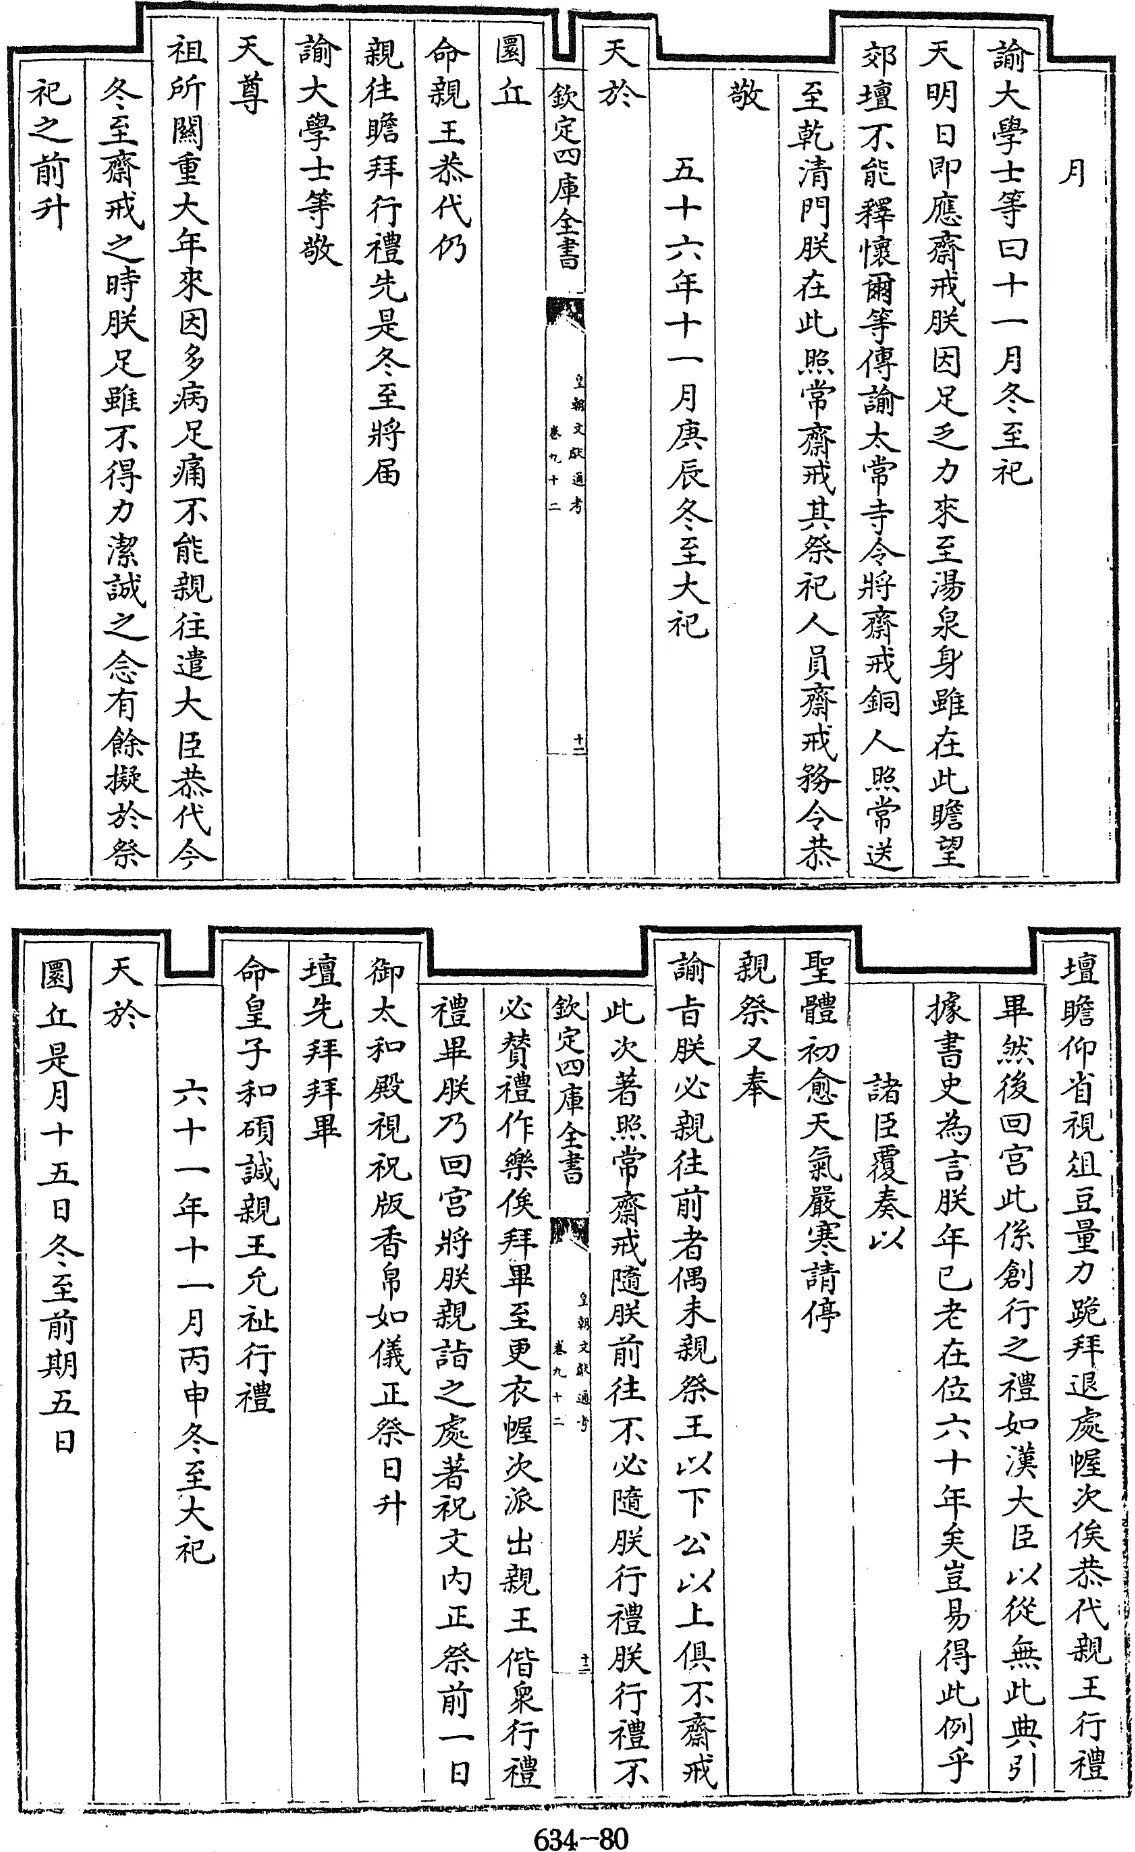 月
諭大學士等曰十一月冬至祀
天明日即應齋戒朕因足乏力來至湯泉身雖在此瞻望
郊壇不能釋懷爾等傳諭太常寺令將齋戒銅人照常送
至乾清門朕在此照常齋戒其祭祀人員齋戒務令恭
敬
五十六年十一月庚辰冬至大祀
天於
欽定四庫全書
皇朝文獻通考
卷九十二
十二
圜丘
命親王恭代仍
親往瞻拜行禮先是冬至將届
諭大學士等敬
天尊
祖所關重大年來因多病足痛不能親往遣大臣恭代今
冬至齋戒之時朕足雖不得力潔誠之念有餘擬於祭
祀之前升
壇瞻仰省視俎豆量力跪拜退處幄次俟恭代親王行禮
畢然後回宫此係創行之禮如漢大臣以從無此典引
據書史為言朕年已老在位六十年矣豈易得此例乎
諸臣覆奏以
聖體初愈天氣嚴寒請停
親祭又奉
諭旨朕必親往前者偶未親祭王以下公以上俱不齋戒
此次著照常齋戒隨朕前往不必隨朕行禮朕行禮不
欽定四庫全書
皇朝文獻通考
卷九十二
十三
必贊禮作樂俟拜畢至更衣幄次派出親王偕衆行禮
禮畢朕乃回宫將朕親詣之處著祝文内正祭前一日
御太和殿視祝版香帛如儀正祭日升
壇先拜拜畢
命皇子和碩誠親王允祉行禮
六十一年十一月丙申冬至大祀
天於
圜丘是月十五日冬至前期五日
634-80